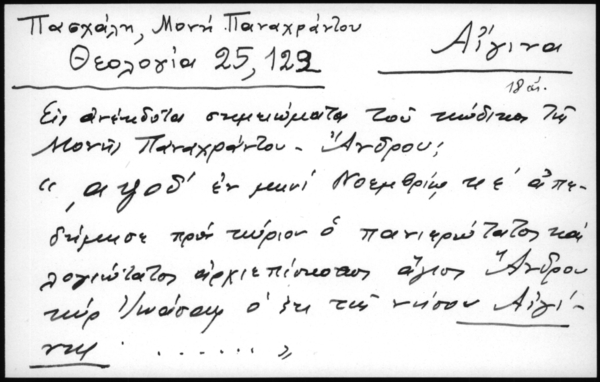 Πασχάλη, Μονή Παναχράντου
Αἴγινα
Θεολογία 25, 129
18 αἰ.
Εἰς ἀνέκδοτα σημειώματα τοῦ κώδικος τῆς
Μονῆς Παναχράντου - Ἄνδρου;
“ ‚αψοδ' ἐν μηνί Νοεμβρίῳ κε' ἀπε-
δήμησε πρός κύριον ὁ πανιερώτατος καί
λογιώτατος ἀρχιεπίσκοπος ἅγιος Ἄνδρου
κύρ Ἰωάσαφ ὁ ἐκ τῆς νήσου Αἰγί-
νης . . . . . . . ”